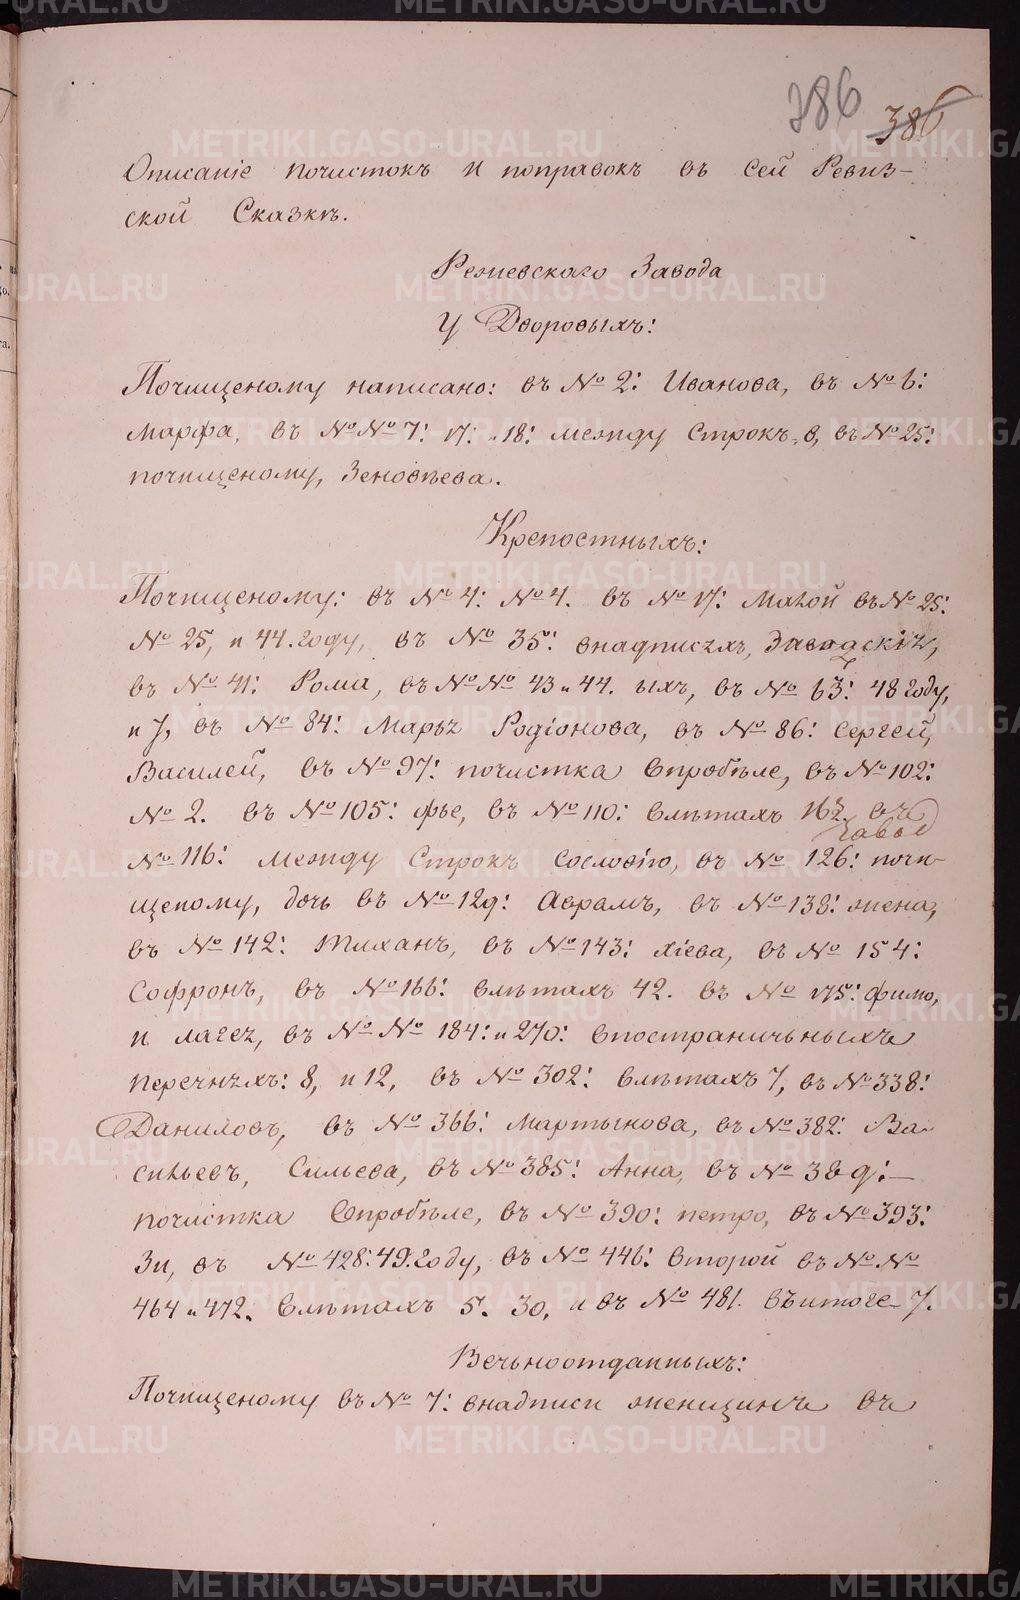 386 386
Описаніе почистокъ и поправокъ въ сей Ревиз-
ской Сказкѣ.
Режевскаго Завода
У Дворовыхъ:
Почищеному написано: въ № 2: Иванова, въ № 6:
Марфа, въ №№ 7: 17: и 18: между строкъ, въ № 25:
почищеному, Зеновьева.
Крепостныхъ:
Почищеному: въ № 4: № 4. въ № 17: въ № 25:
№ 25, и 44. году, въ № 35: внадписяхъ, Заводскія,
въ № 41: Рома, въ №№ 43 и 44. ыхъ, въ № 63: 48 году,
и 7, въ № 84: Марья Родіонова, въ № 86: Сергей,
Василей, въ № 97: почистка впробѣле, въ № 102:
№ 2. въ № 105: фье, въ № 110: влѣтахъ въ
завод
№ 116: между строкъ сословію, въ № 126: почи-
щеному, дочь въ № 129: Аврамъ, въ № 138: жена,
въ № 142: въ № 143: хіева, въ № 154:
Софронъ, въ № 166: влѣтахъ 42. въ № 175: фимо,
и лагея, въ №№ 184: и 270: впостраничьныхъ
перечняхъ: 8, и 12, въ № 302: влѣтахъ 7, въ № 338:
Даниловъ, въ № 366: Мартынова, въ № 382: Ва-
сильевъ, Сильева, въ № 385: Анна, въ № 389:
почистка впробѣле, въ № 390: петро, въ № 393:
Зи, въ № 428: 49. году, въ № 446: второй въ №№
464 и 472. влѣтахъ 5. 30, и въ № 481. въитоге 7.
Вечьноотданныхъ:
Почищеному въ № 7: внадписи женщинъ въ
METRIKI.GASO-URAL.RU